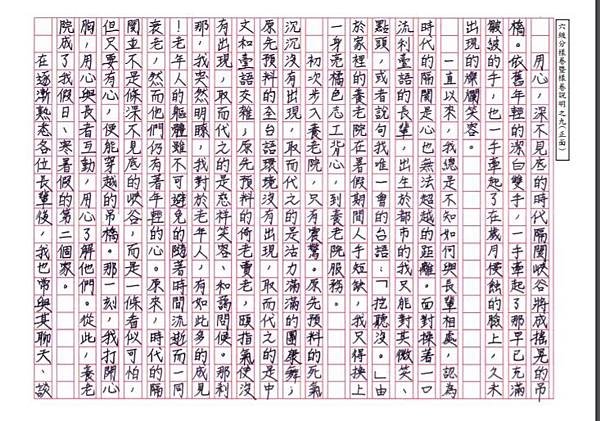 六級分樣卷暨樣卷說明之九(正面)
用心,深不見底的時代隔閡峽谷將成搖晃的吊
橋。依舊年輕的潔白雙手,一手牽起了那早已充滿
皺紋的手,也一手牽起了在歲月侵蝕的臉上,久未
出現的燦爛笑容。
一直以來,我總是不知如何與長輩相處,認為
時代的隔閡是心也無法超越的距離。面對操著一口
流利臺語的長輩,出生於都市的我只能對其微笑、
點頭,或者說句我唯一會的台語:「挖聽沒。」由
於家裡的養老院在暑假期間人手短缺,我只得換上
一身亮橘色志工背心,到養老院服務。
初次步入養老院,只有震驚。原先預料的死氣
沉沉沒有出現,取而代之的是活力滿滿的團康舞;
原先預料的全台語環境沒有出現,取而代之的是中
文和臺語交雜;原先預料的倚老賣老,頤指氣使沒
有出現,取而代之的是慈祥笑容、和藹問候。那剎
那,我突然明瞭,我對於老年人,有如此多的成見
!老年人的軀體雖不可避免的隨著時間流逝而一同
衰老,然而他們仍有著年輕的心。原來,時代的隔
閡並不是條深不見底的峽谷,而是一條看似可怕,
但只要有心,便能穿越的吊橋。那一刻,我打開心
胸,用心與長者互動,用心了解他們。從此,養老
院成了我假日、寒暑假的第二個家。
在逐漸熟悉各位長輩後,我也常與其聊天、談